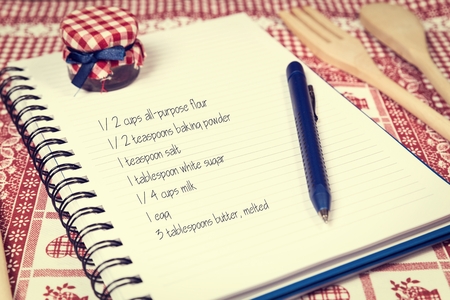 1/2 cups all-purpose flour
1/2 teaspoons baking powder
1 teaspoon salt
1 tablespoon white sugar
1/4 cups milk
1 egg
3 tablespoons butter, melted